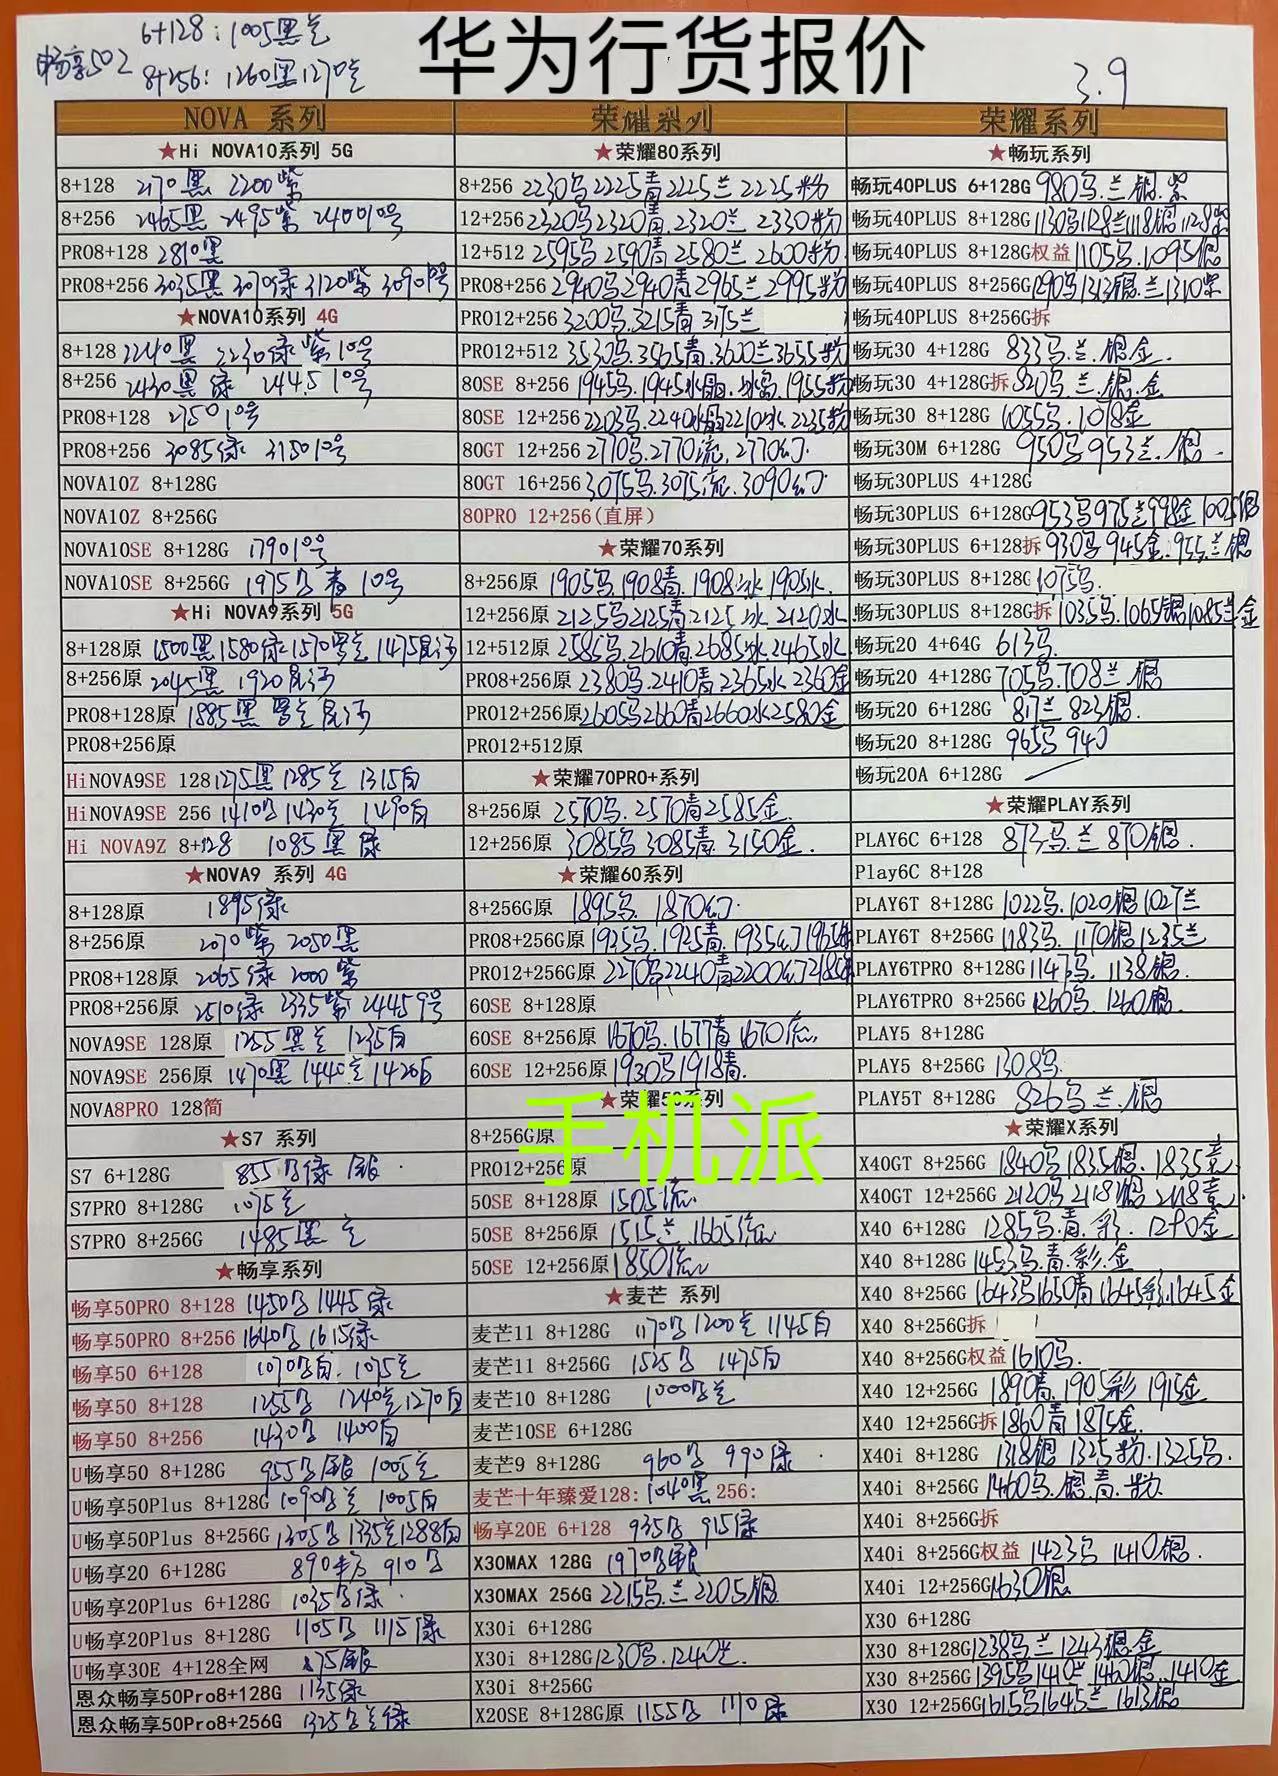 6+128:1005黑兰
畅享50Z
8+256:1260黑1270兰
华为行货报价
3.9
NOVA 系列
★Hi NOVA10系列 5G
8+128 2170黑 2200紫
8+256 2465黑 2495紫 240010号
PRO8+128 2810黑
PRO8+256 3035黑 3070绿 3120紫 309010号
★NOVA10系列 4G
8+128 2240黑 2230绿紫10号
8+256 2430黑绿 2445.10号
PRO8+128 275010号
PRO8+256 3085绿 315010号
NOVA10Z 8+128G
NOVA10Z 8+256G
NOVA10SE 8+128G 179010号
NOVA10SE 8+256G 1975 青 10号
★Hi NOVA9系列 5G
8+128原 1500黑1580绿1570 1475
8+256原 2045黑 1920
PRO8+128原 1885黑
PRO8+256原
HiNOVA9SE 128 1275黑1285兰 1315白
HiNOVA9SE 256 1410 1430兰 1490白
Hi NOVA9Z 8+128 1085黑绿
★NOVA9 系列 4G
8+128原 1895绿
8+256原 2070紫 2050黑
PRO8+128原 2065绿 2000紫
PRO8+256原 2510绿 2335紫 24459号
NOVA9SE 128原 1255黑兰 1235白
NOVA9SE 256原 1470黑 1440兰 1420白
NOVA8PRO 128简
★S7 系列
S7 6+128G 855 绿 银
S7PRO 8+128G 1075兰
S7PRO 8+256G 1485黑兰
★畅享系列
畅享50PRO 8+128 1450 1445绿
畅享50PRO 8+256 1640 1615绿
畅享50 6+128 1070 白.1075兰
畅享50 8+128 1255 1240兰1270白
畅享50 8+256 1430 1400白
U畅享50 8+128G 955 银 1005兰
U畅享50Plus 8+128G 1090 兰 1005白
U畅享50Plus 8+256G 1305 1335兰1288白
U畅享20 6+128G 890 910
U畅享20Plus 6+128G 1035 绿
U畅享20Plus 8+128G 1105 1115绿
U畅享30E 4+128全网 875银
恩众畅享50Pro8+128G 1135绿
恩众畅享50Pro8+256G 1325 兰绿
荣耀系列
★荣耀80系列
8+256 2230 2225青2225兰2225粉
12+256 2320 2320青.2320兰 2330粉
12+512 2595 2590青 2580兰 2600粉
PRO8+256 2940 2940青2965兰2995粉
PRO12+256 3200 3215青 3175兰
PRO12+512 3530 3565青.3600兰3655粉
80SE 8+256 1945 1945冰晶. 1955粉
80SE 12+256 2203 2240冰晶2210冰 2235粉
80GT 12+256 2770 2770流.2770幻
80GT 16+256 3075 3075流.3090幻
80PRO 12+256(直屏)
★荣耀70系列
8+256原 1905 1908青.1908冰 1905水.
12+256原 2125 2125青2125冰 2120水
12+512原 2585 2610青2685冰.2465水
PRO8+256原 2380 2410青2365冰2360金
PRO12+256原 2605 2660青2660冰2580金
PRO12+512原
★荣耀70PRO+系列
8+256原 2570 2570青2585金.
12+256原 3085 3085青.3150金.
★荣耀60系列
8+256G原 1895 1870幻
PRO8+256G原 1925 1925青.1935幻
PRO12+256G原 2270 2240青2200幻
60SE 8+128原
60SE 8+256原 1670 1677青1670流
60SE 12+256原 1930 1918青.
★荣耀50系列
手机派
8+256G原
PRO12+256原
50SE 8+128原 1505流.
50SE 8+256原 1515兰 1665流.
50SE 12+256原 1850流
★麦芒 系列
麦芒11 8+128G 1170 1200兰 1145白
麦芒11 8+256G 1525 1475白
麦芒10 8+128G 1000 兰
麦芒10SE 6+128G
麦芒9 8+128G 960 990绿
麦芒十年臻爱128: 1040黑 256:
畅享20E 6+128 935 915绿
X30MAX 128G 1970 银
X30MAX 256G 2215 兰 2205银
X30i 6+128G
X30i 8+128G 1230 1240兰.
X30i 8+256G
X20SE 8+128G原 1155 1170绿
荣耀系列
★畅玩系列
畅玩40PLUS 6+128G 980 兰 银.紫
畅玩40PLUS 8+128G 1130 1128兰1118银1128紫
畅玩40PLUS 8+128G权益 1105 1095银
畅玩40PLUS 8+256G 1290 1313银.兰1310紫
畅玩40PLUS 8+256G拆
畅玩30 4+128G 833 兰.银金.
畅玩30 4+128G拆 820 兰.银.金
畅玩30 8+128G 1055 1018金
畅玩30M 6+128G 950 953兰.银.
畅玩30PLUS 4+128G
畅玩30PLUS 6+128G 953 975兰998金1005银
畅玩30PLUS 6+128拆 930 945金.955兰银
畅玩30PLUS 8+128G 1075
畅玩30PLUS 8+128G拆 1035 1065银1085兰金
畅玩20 4+64G 613
畅玩20 4+128G 705 708兰 银
畅玩20 6+128G 817兰 823银.
畅玩20 8+128G 965 940
畅玩20A 6+128G
★荣耀PLAY系列
PLAY6C 6+128 873 兰 870银.
Play6C 8+128
PLAY6T 8+128G 1022 1020银1027兰
PLAY6T 8+256G 1183 1170银1235兰
PLAY6TPRO 8+128G 1147 1138银.
PLAY6TPRO 8+256G 1260 1260银.
PLAY5 8+128G
PLAY5 8+256G 1308
PLAY5T 8+128G 826 兰.银
★荣耀X系列
X40GT 8+256G 1840 1835银.1835竞.
X40GT 12+256G 2120 2118银 2118竞.
X40 6+128G 1285 青.彩.1290金
X40 8+128G 1453 青.彩.金
X40 8+256G 1643 1650青1645彩.1645金
X40 8+256G拆
X40 8+256G权益 1610
X40 12+256G 1890青.1905彩 1915金
X40 12+256G拆 1860青1875金.
X40i 8+128G 1318银 1325粉.1325
X40i 8+256G 1460 银.青.粉.
X40i 8+256G拆
X40i 8+256G权益 1423 1410银.
X40i 12+256G 1630银
X30 6+128G
X30 8+128G 1238 兰1243银金
X30 8+256G 1395 1410兰1460银.1410金
X30 12+256G 1615 1645兰1613银